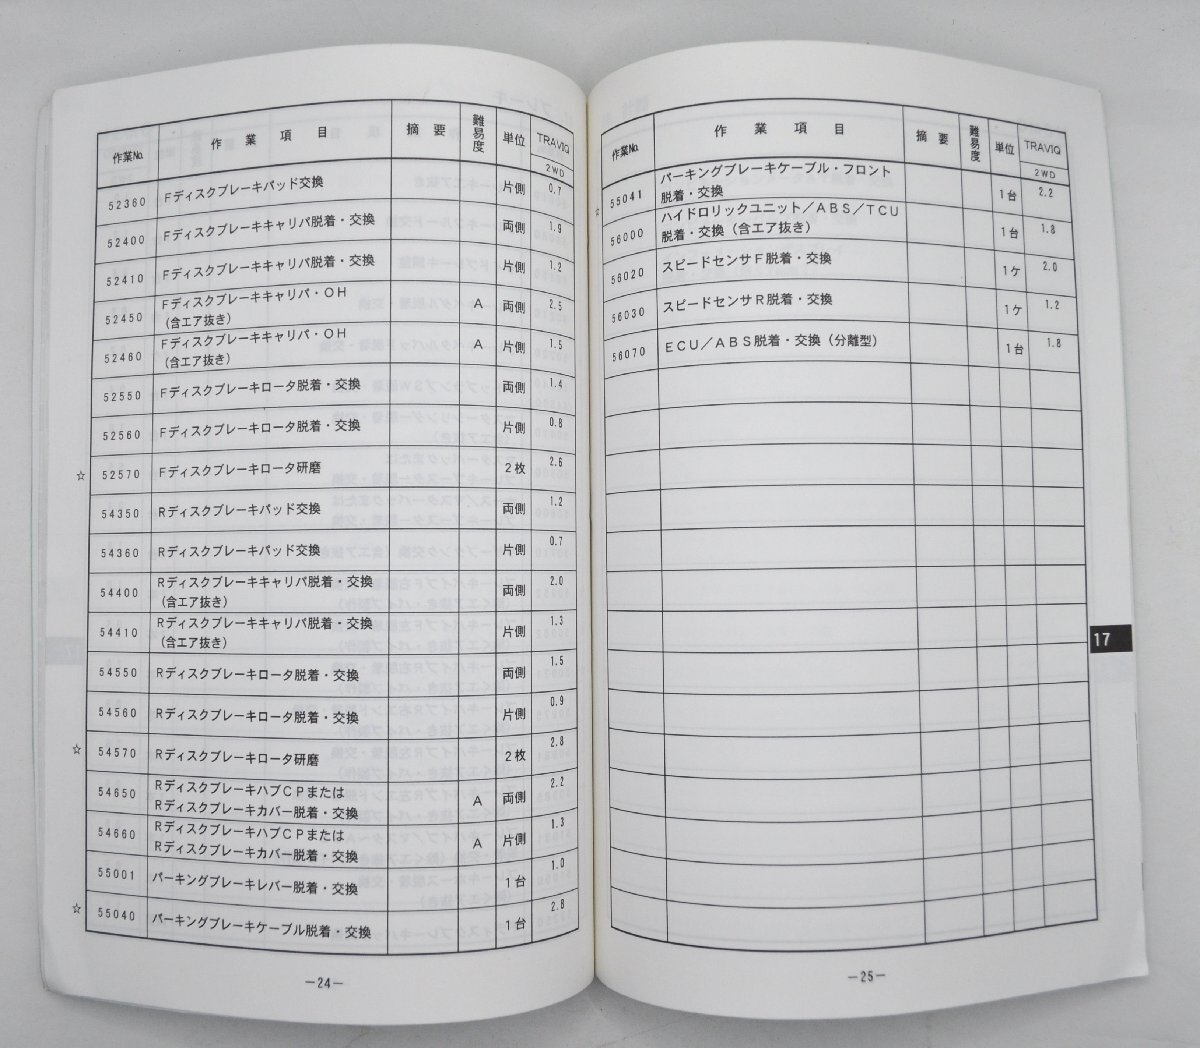 作業No. 作業項目 摘要 難易度 単位 TRAVIQ
2WD
52360 Fディスクブレーキパッド交換 片側 0.7
52400 Fディスクブレーキキャリパ脱着・交換 両側 1.9
52410 Fディスクブレーキキャリパ脱着・交換 片側 1.2
52450 Fディスクブレーキキャリパ・OH A 両側 2.5
(含エア抜き)
52460 Fディスクブレーキキャリパ・OH A 片側 1.5
(含エア抜き)
52550 Fディスクブレーキロータ脱着・交換 両側 1.4
52560 Fディスクブレーキロータ脱着・交換 片側 0.8
☆ 52570 Fディスクブレーキロータ研磨 2枚 2.6
54350 Rディスクブレーキパッド交換 両側 1.2
54360 Rディスクブレーキパッド交換 片側 0.7
54400 Rディスクブレーキキャリパ脱着・交換 両側 2.0
(含エア抜き)
54410 Rディスクブレーキキャリパ脱着・交換 片側 1.3
(含エア抜き)
54550 Rディスクブレーキロータ脱着・交換 両側 1.5
54560 Rディスクブレーキロータ脱着・交換 片側 0.9
☆ 54570 Rディスクブレーキロータ研磨 2枚 2.8
54650 RディスクブレーキハブCPまたは A 両側 2.2
Rディスクブレーキカバー脱着・交換
54660 RディスクブレーキハブCPまたは A 片側 1.3
Rディスクブレーキカバー脱着・交換
55001 パーキングブレーキレバー脱着・交換 1台 1.0
☆ 55040 パーキングブレーキケーブル脱着・交換 1台 2.8
－24－
作業No. 作業項目 摘要 難易度 単位 TRAVIQ
2WD
☆ 55041 パーキングブレーキケーブル・フロント 1台 2.2
脱着・交換
56000 ハイドロリックユニット／ABS／TCU 1台 1.8
脱着・交換（含エア抜き）
56020 スピードセンサF脱着・交換 1ケ 2.0
56030 スピードセンサR脱着・交換 1ケ 1.2
56070 ECU／ABS脱着・交換（分離型） 1台 1.8
17
－25－